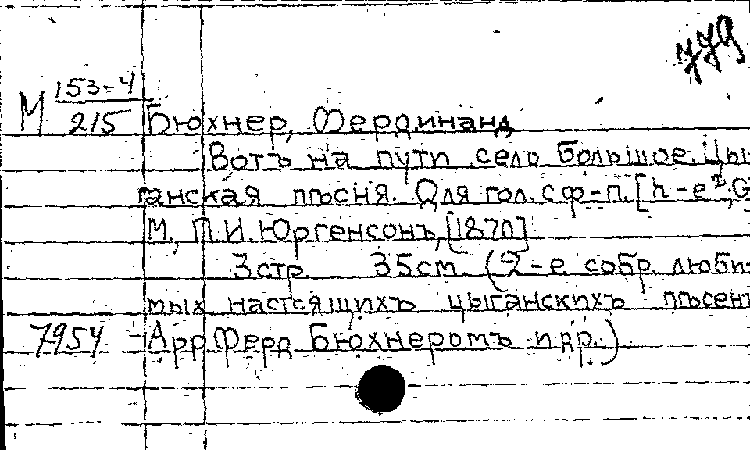 779
М 153-4
215 Бюхнер, Фердинанд
Вотъ на пути село большое. Цы-
ганская пѣсня. Для гол. с ф-п. [h-e²,G
М., П.И. Юргенсонъ, [1870]
3 стр. 35 см. (2-е собр. люби-
мых настоящихъ цыганскихъ пѣсен
7954 - Арр. Ферд. Бюхнеромъ и др.)